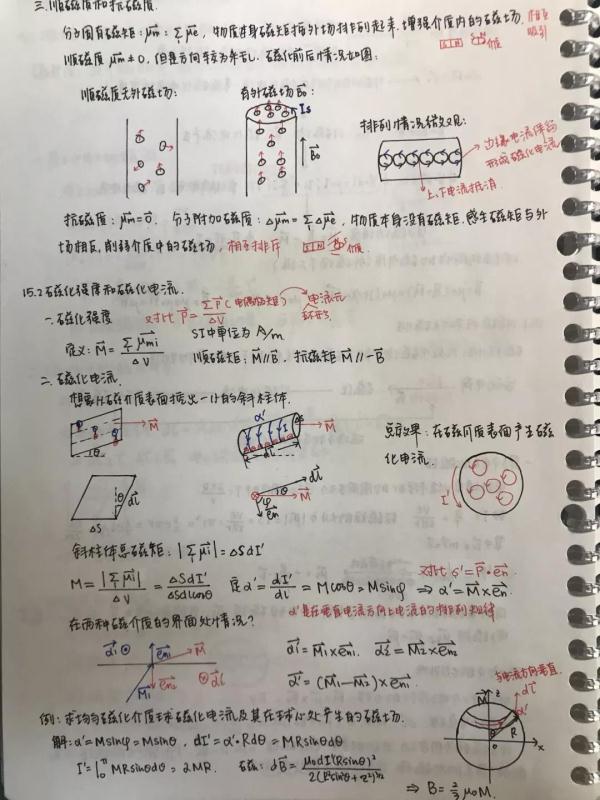 三.顺磁质和抗磁质.
分子固有磁矩: μ⃗m = Σ μ⃗e, 物质本身磁矩按外场排列起来. 增强介质内的磁场. 相互吸引
顺磁质 μ⃗m ≠ 0, 但是方向转为杂乱. 磁化前后情况如图:
顺磁质无外磁场: 有外磁场 B⃗0:
Is
B⃗0
排列情况微观:
边缘电流保留
形成磁化电流
上下电流抵消.
抗磁质: μ⃗m = 0⃗. 分子附加磁质: Δμ⃗m = Σ Δμ⃗e, 物质本身没有磁矩. 感生磁矩与外
场相反, 削弱介质中的磁场, 相互排斥
15.2 磁化强度和磁化电流.
一.磁化强度 对比 P⃗ = ΣP⃗(电偶极矩)/ΔV 电流元
定义: M⃗ = Σμ⃗mi/ΔV SI中单位为 A/m
顺磁矩: M⃗∥B⃗. 抗磁矩 M⃗∥-B⃗
二.磁化电流.
想象从磁介质表面挖出一个的斜柱体.
M⃗
θ
α' I
M⃗
dl
宏观效果: 在磁介质表面产生磁
化电流.
I'
ΔS
θ dl⃗
dl⃗
θ M⃗
φ
e⃗n
斜柱体总磁矩: |Σμ⃗i| = ΔSdI'
对比 σ' = P⃗·e⃗n.
M = |Σμ⃗i|/ΔV = ΔSdI'/ΔSdlcosθ 定 α' = dI'/dl = Mcosθ = Msinφ ⇒ α⃗' = M⃗×e⃗n.
α'是在垂直电流方向上电流的排列规律
在两种磁介质的界面处情况?
α⃗1 e⃗n1 M⃗
M⃗1 e⃗n2 α⃗2
α⃗1' = M⃗1×e⃗n1. α⃗2' = M⃗2×e⃗n2
α⃗' = (M⃗1-M⃗2)×e⃗n1
与电流方向垂直.
例: 求均匀磁化介质球磁化电流及其在球心处产生的磁场.
解: α' = Msinφ = Msinθ, dI' = α'·Rdθ = MRsinθdθ
I' = ∫₀^π MRsinθdθ = 2MR. 磁场: dB⃗ = μ0dI'(Rsinθ)²/2(R²sin²θ+z²)^3/2
M⃗ z dl⃗ α' θ R o x
⇒ B = 2/3 μ0M.